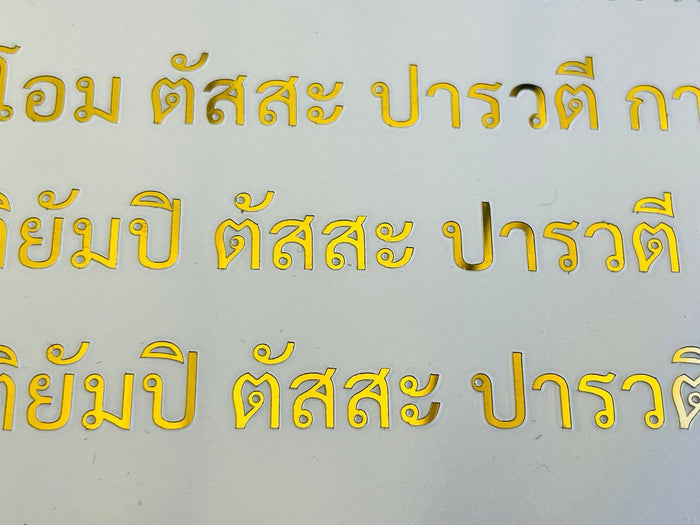 โอม ตัสสะ ปารวตี กา
ติยัมปิ ตัสสะ ปารวตี
ติยัมปิ ตัสสะ ปารวติ